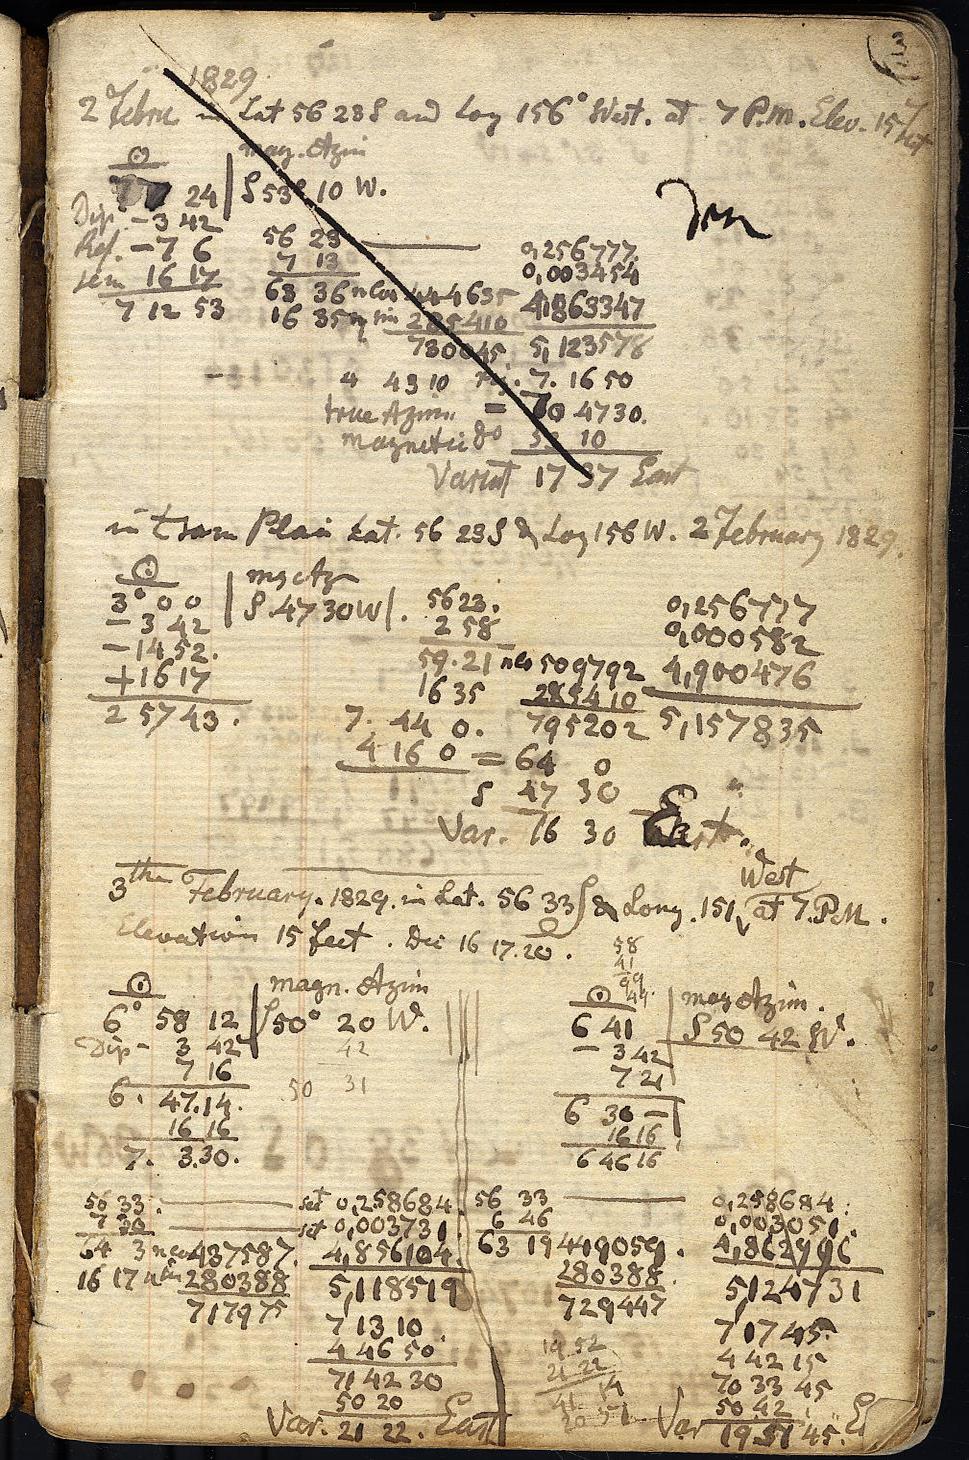 3
1829
2 Febru in Lat 56 23 S and Log 156° West. at 7 P.m. Elev. 15 Fet
mag. Azim
24 | S 53 10 W.
Dip. - 3 42
Ref. - 7 6
sem 16 17
7 12 53
56 23
7 13
63 36 n cos 444635
16 35 n sin 285410
730045
0,256777
0,003454
4,863347
5,123578
4 43 10 7. 16 50
true Azim = 70 4730.
magnetic do 53 10
Variat 17 37 East
in Tram Plain Lat. 56 23 S & Log 156 W. 2 February 1829.
mg Az
3° 0 0 | S. 47 30 W |.
- 3 42
- 14 52.
+ 16 17
2 57 43.
56 23.
2 58
59. 21 ncs 509792
16 35 285410
795202
0,256777
0,000582
4,900476
5,157835
7. 44 0.
4 16 0 = 64 0
S 47 30
Var. 16 30 East.
3the February. 1829. in Lat. 56 33 S & Long. 151 West at 7. P.M.
Elevation 15 feet. Dec 16 17. 20.
58
41
99
magn. Azim
6° 58 12 | S 50° 20 W.
Dip - 3 42
7 16
6. 47. 14.
16 16
7. 3. 30.
42
50 31
mag Azim.
6 41 | S 50 42 W.
- 3 42
7 21
6 30 -
16 16
6 46 16
56 33. set 0,258684.
7 30 set 0,003731
64 3 n cos 437587. 4,856104.
16 17 n sin 280388 5,118519
717975
7 13 10.
4 46 50
71 42 30
50 20
Var. 21 22. East
56 33 0,258684.
6 46 0,003051.
63 19 449059. 4,862996
280388. 5,124731
729447
7 17 45.
4 42 15
70 33 45
50 42
Var 19 51 45. E
19 52
21 22
41 14
20 37